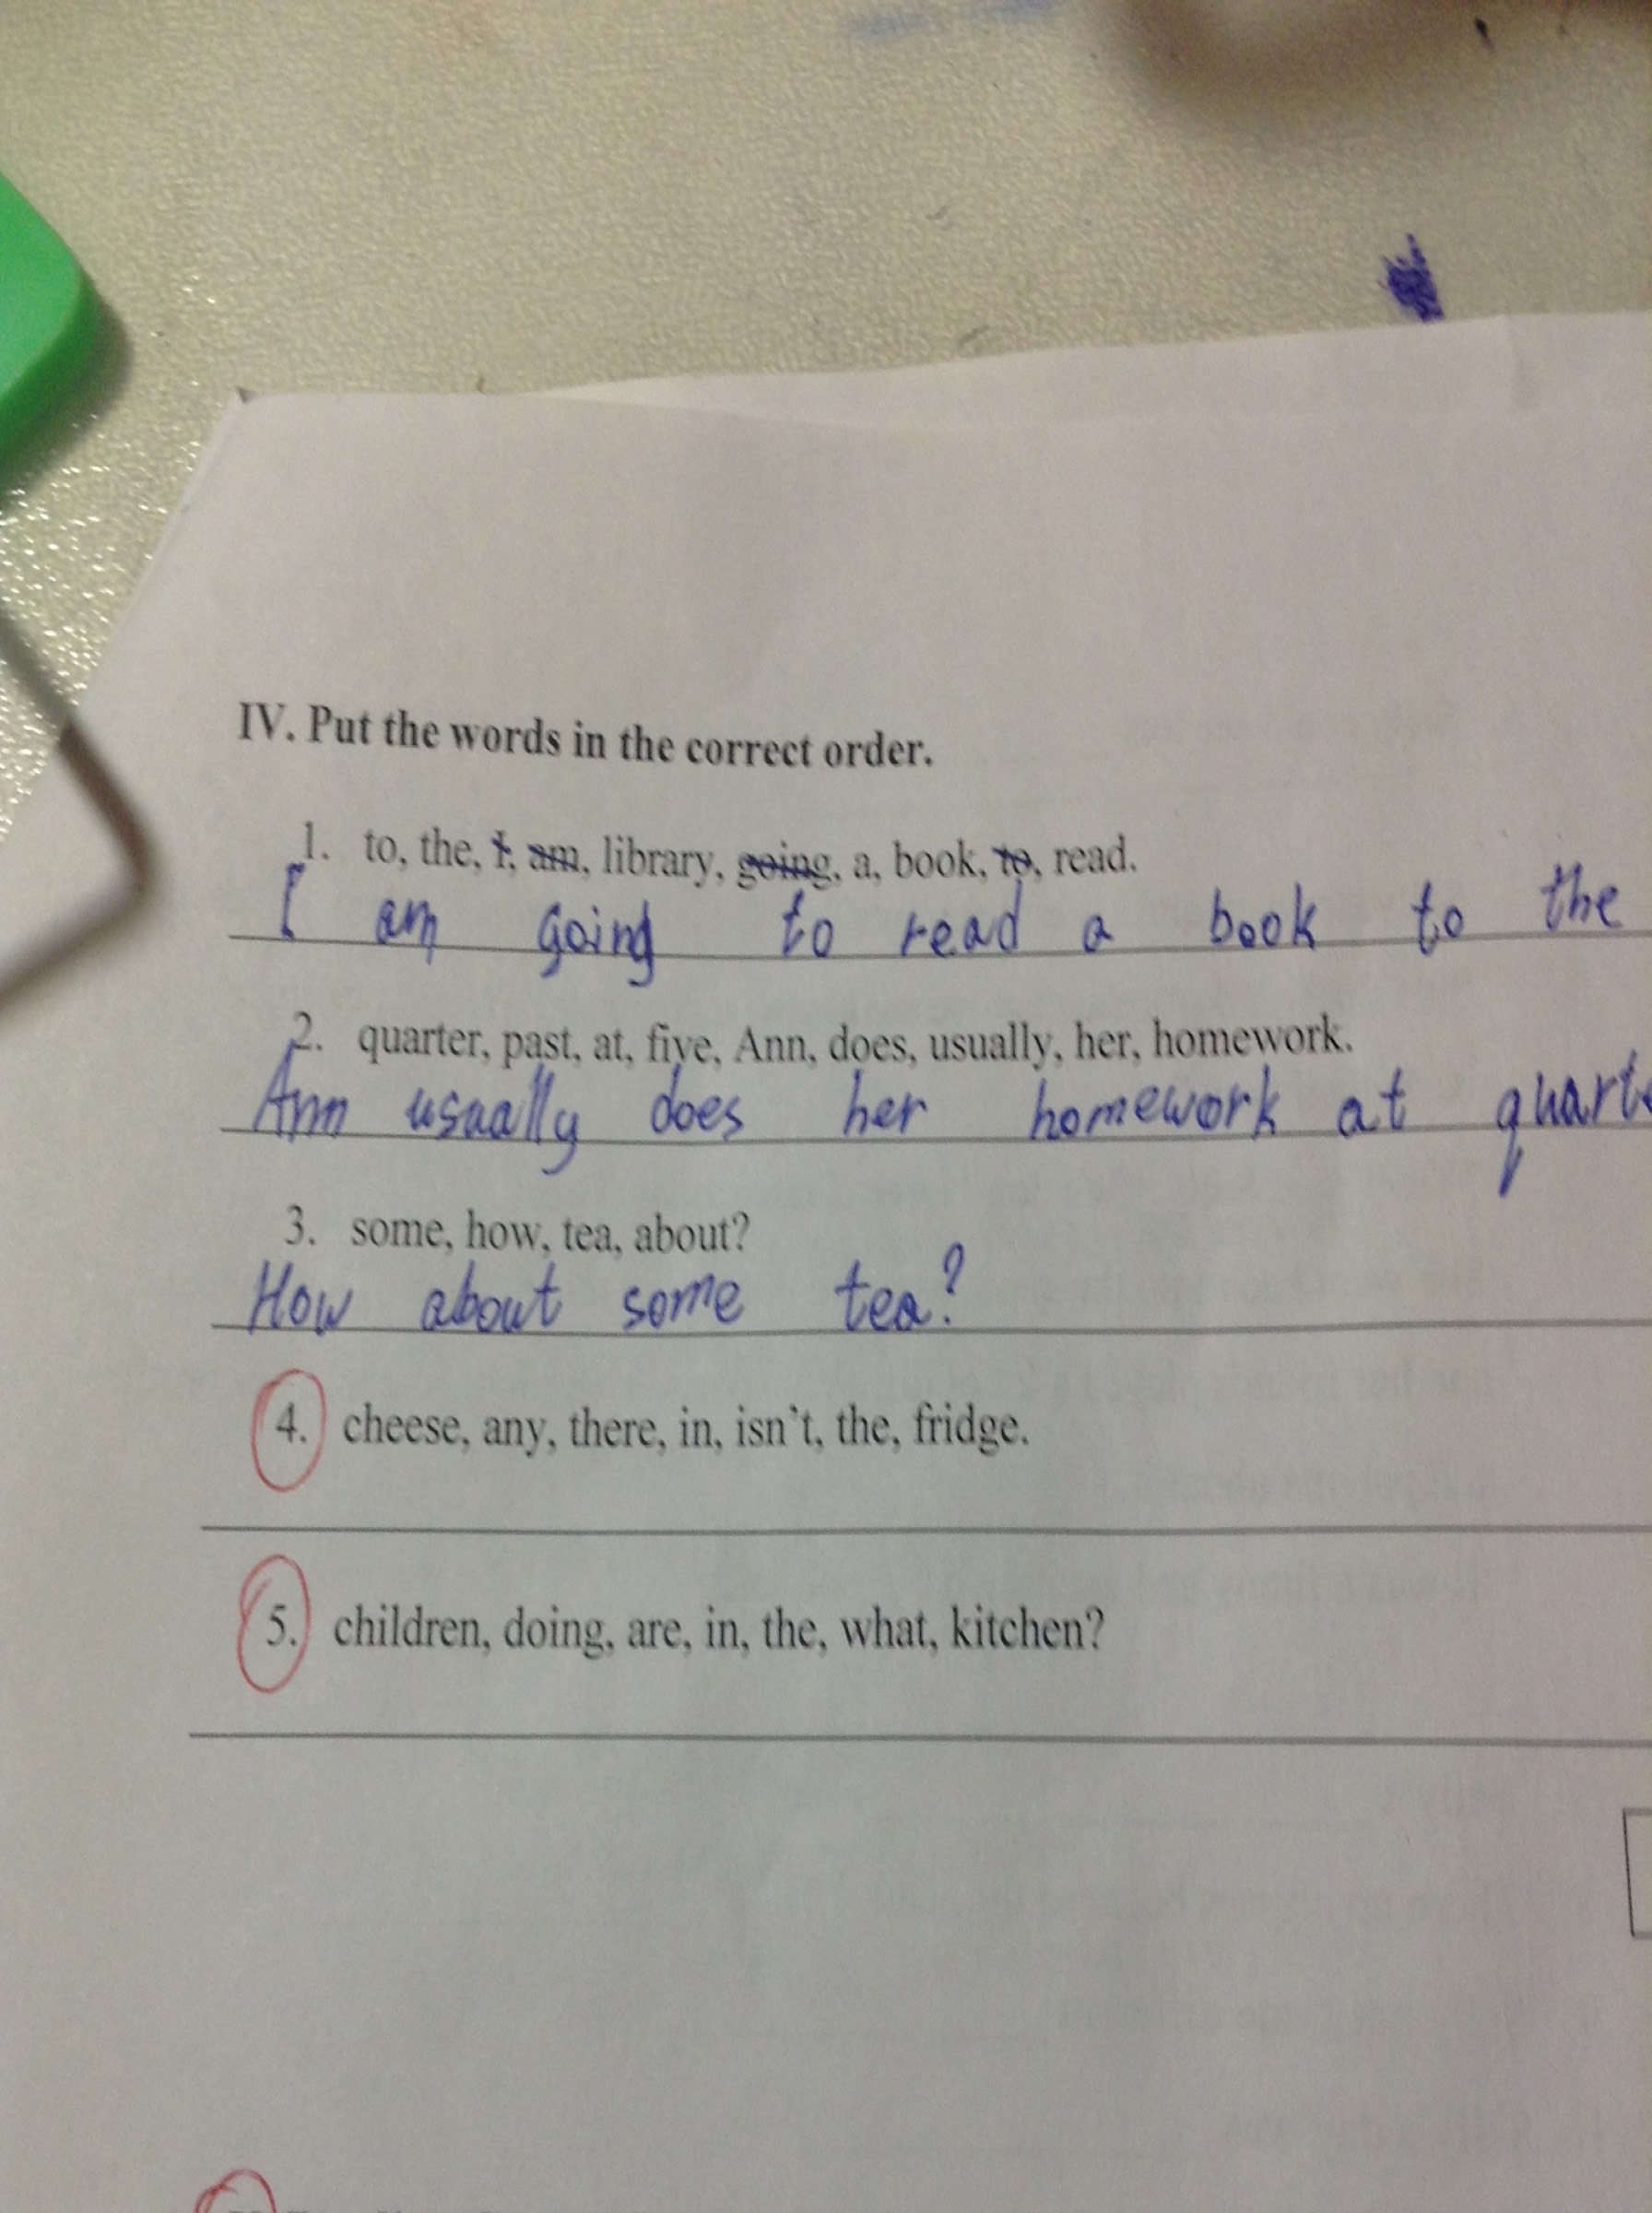 IV. Put the words in the correct order.
1. to, the, I, am, library, going, a, book, to, read.
I am going to read a book to the
2. quarter, past, at, five, Ann, does, usually, her, homework.
Ann usually does her homework at
3. some, how, tea, about?
How about some tea?
4. cheese, any, there, in, isn't, the, fridge.
5. children, doing, are, in, the, what, kitchen?